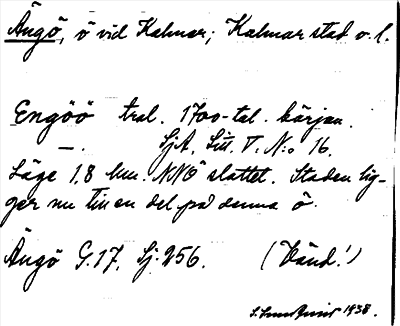 Ängö, ö vid Kalmar; Kalmar stad o. l.
Engöö tral. 1700-tal. början.
—. SjA. Litt. V. N:o 16.
Läge 1,8 km. NNÖ slottet. Staden lig-
ger nu till en del på denna ö.
Ängö G.17. Sj. 256. (Vänd!)
1938.